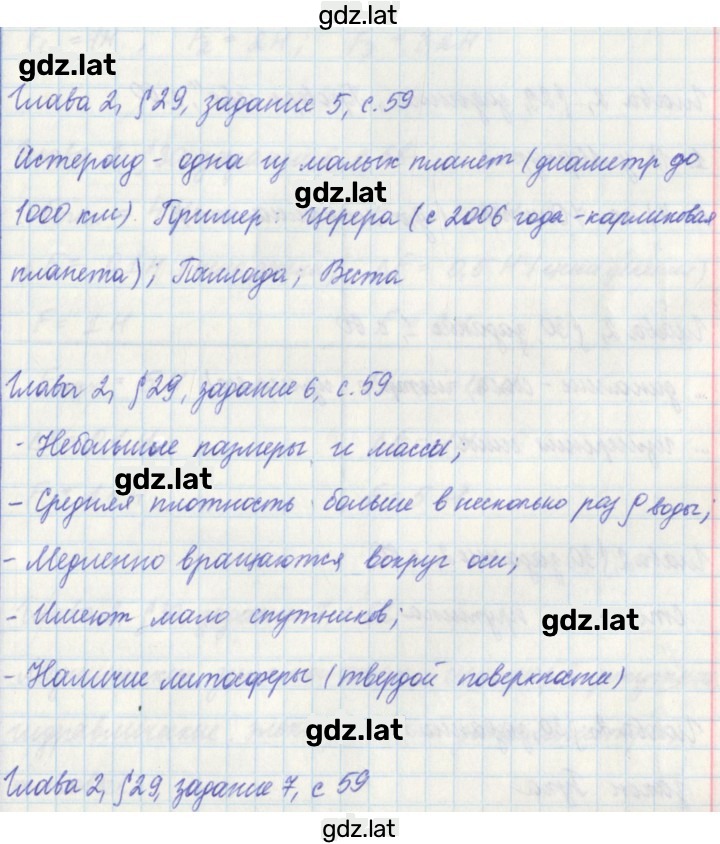 gdz.lat
gdz.lat
Глава 2, § 29, задание 5, с. 59
Астероид - одна из малых планет (диаметр до
gdz.lat
1000 км). Пример Церера (с 2006 года - карликовая
планета); Паллада; Веста
Глава 2, § 29, задание 6, с. 59
- Небольшие размеры и массы;
gdz.lat
- Средняя плотность больше в несколько раз ρ воды;
- Медленно вращаются вокруг оси;
- Имеют мало спутников;
gdz.lat
- Наличие литосферы (твердой поверхности)
gdz.lat
Глава 2, § 29, задание 7, с 59
gdz.lat